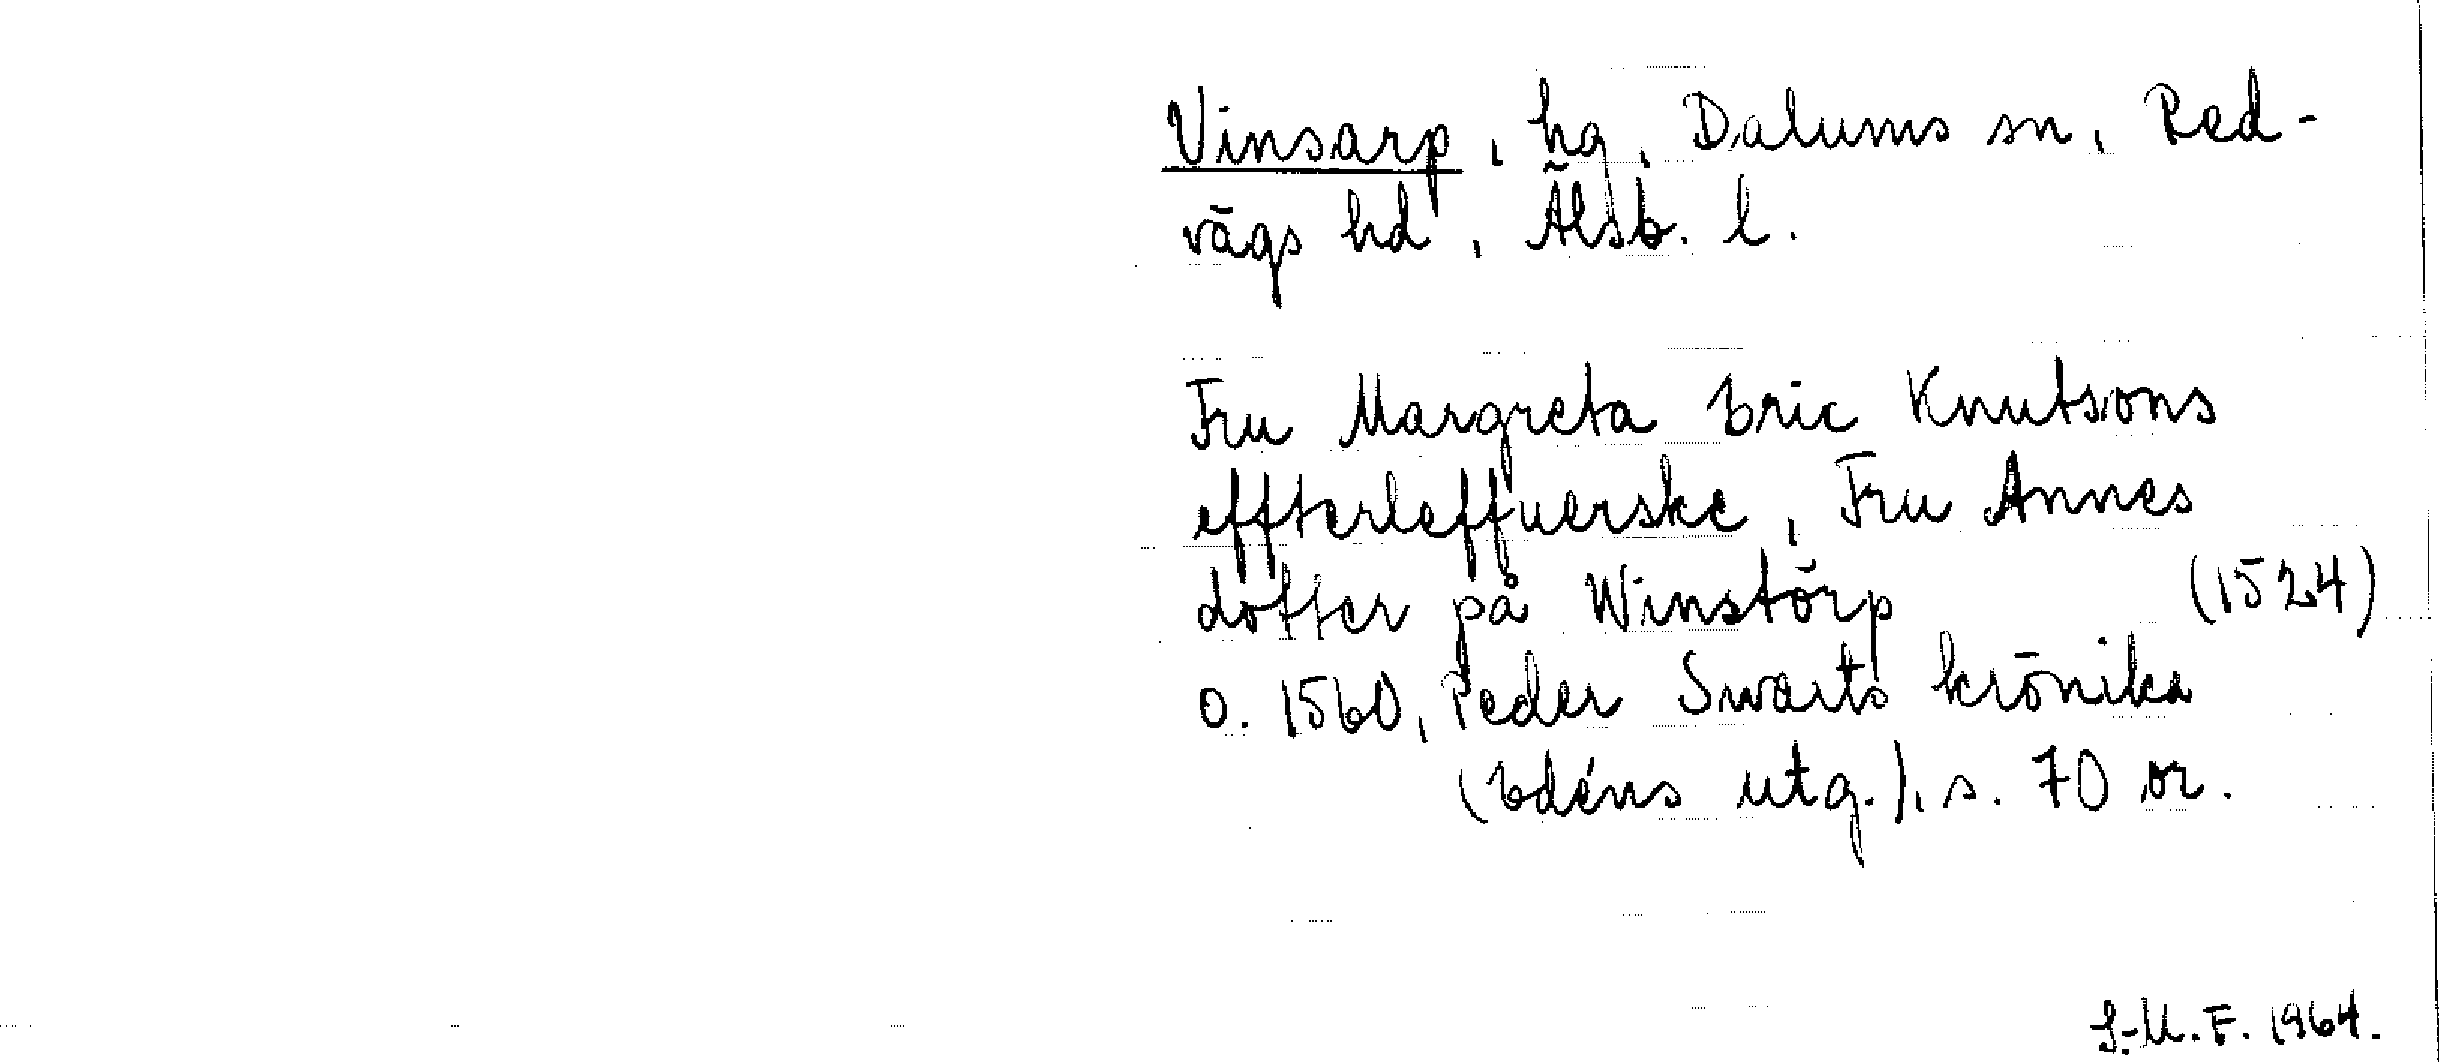 Vinsarp, hg, Dalums sn, Red-
vägs hd, Älsb. l.
Fru Margreta Eric Knutsons
effterleffuerske, Fru Annes
dotter på Winstörp (1524)
o. 1560, Peder Swarts krönika
(Edéns utg.), s. 70 or.
S.-M. F. 1964.